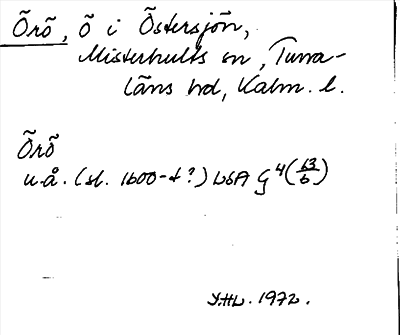 Örö, ö i Östersjön,
Misterhults sn, Tuna-
läns hd, Kalm. l.
Örö
u.å. (sl. 1600-t?) LSA G 4 (63/6)
Y.HL. 1972.